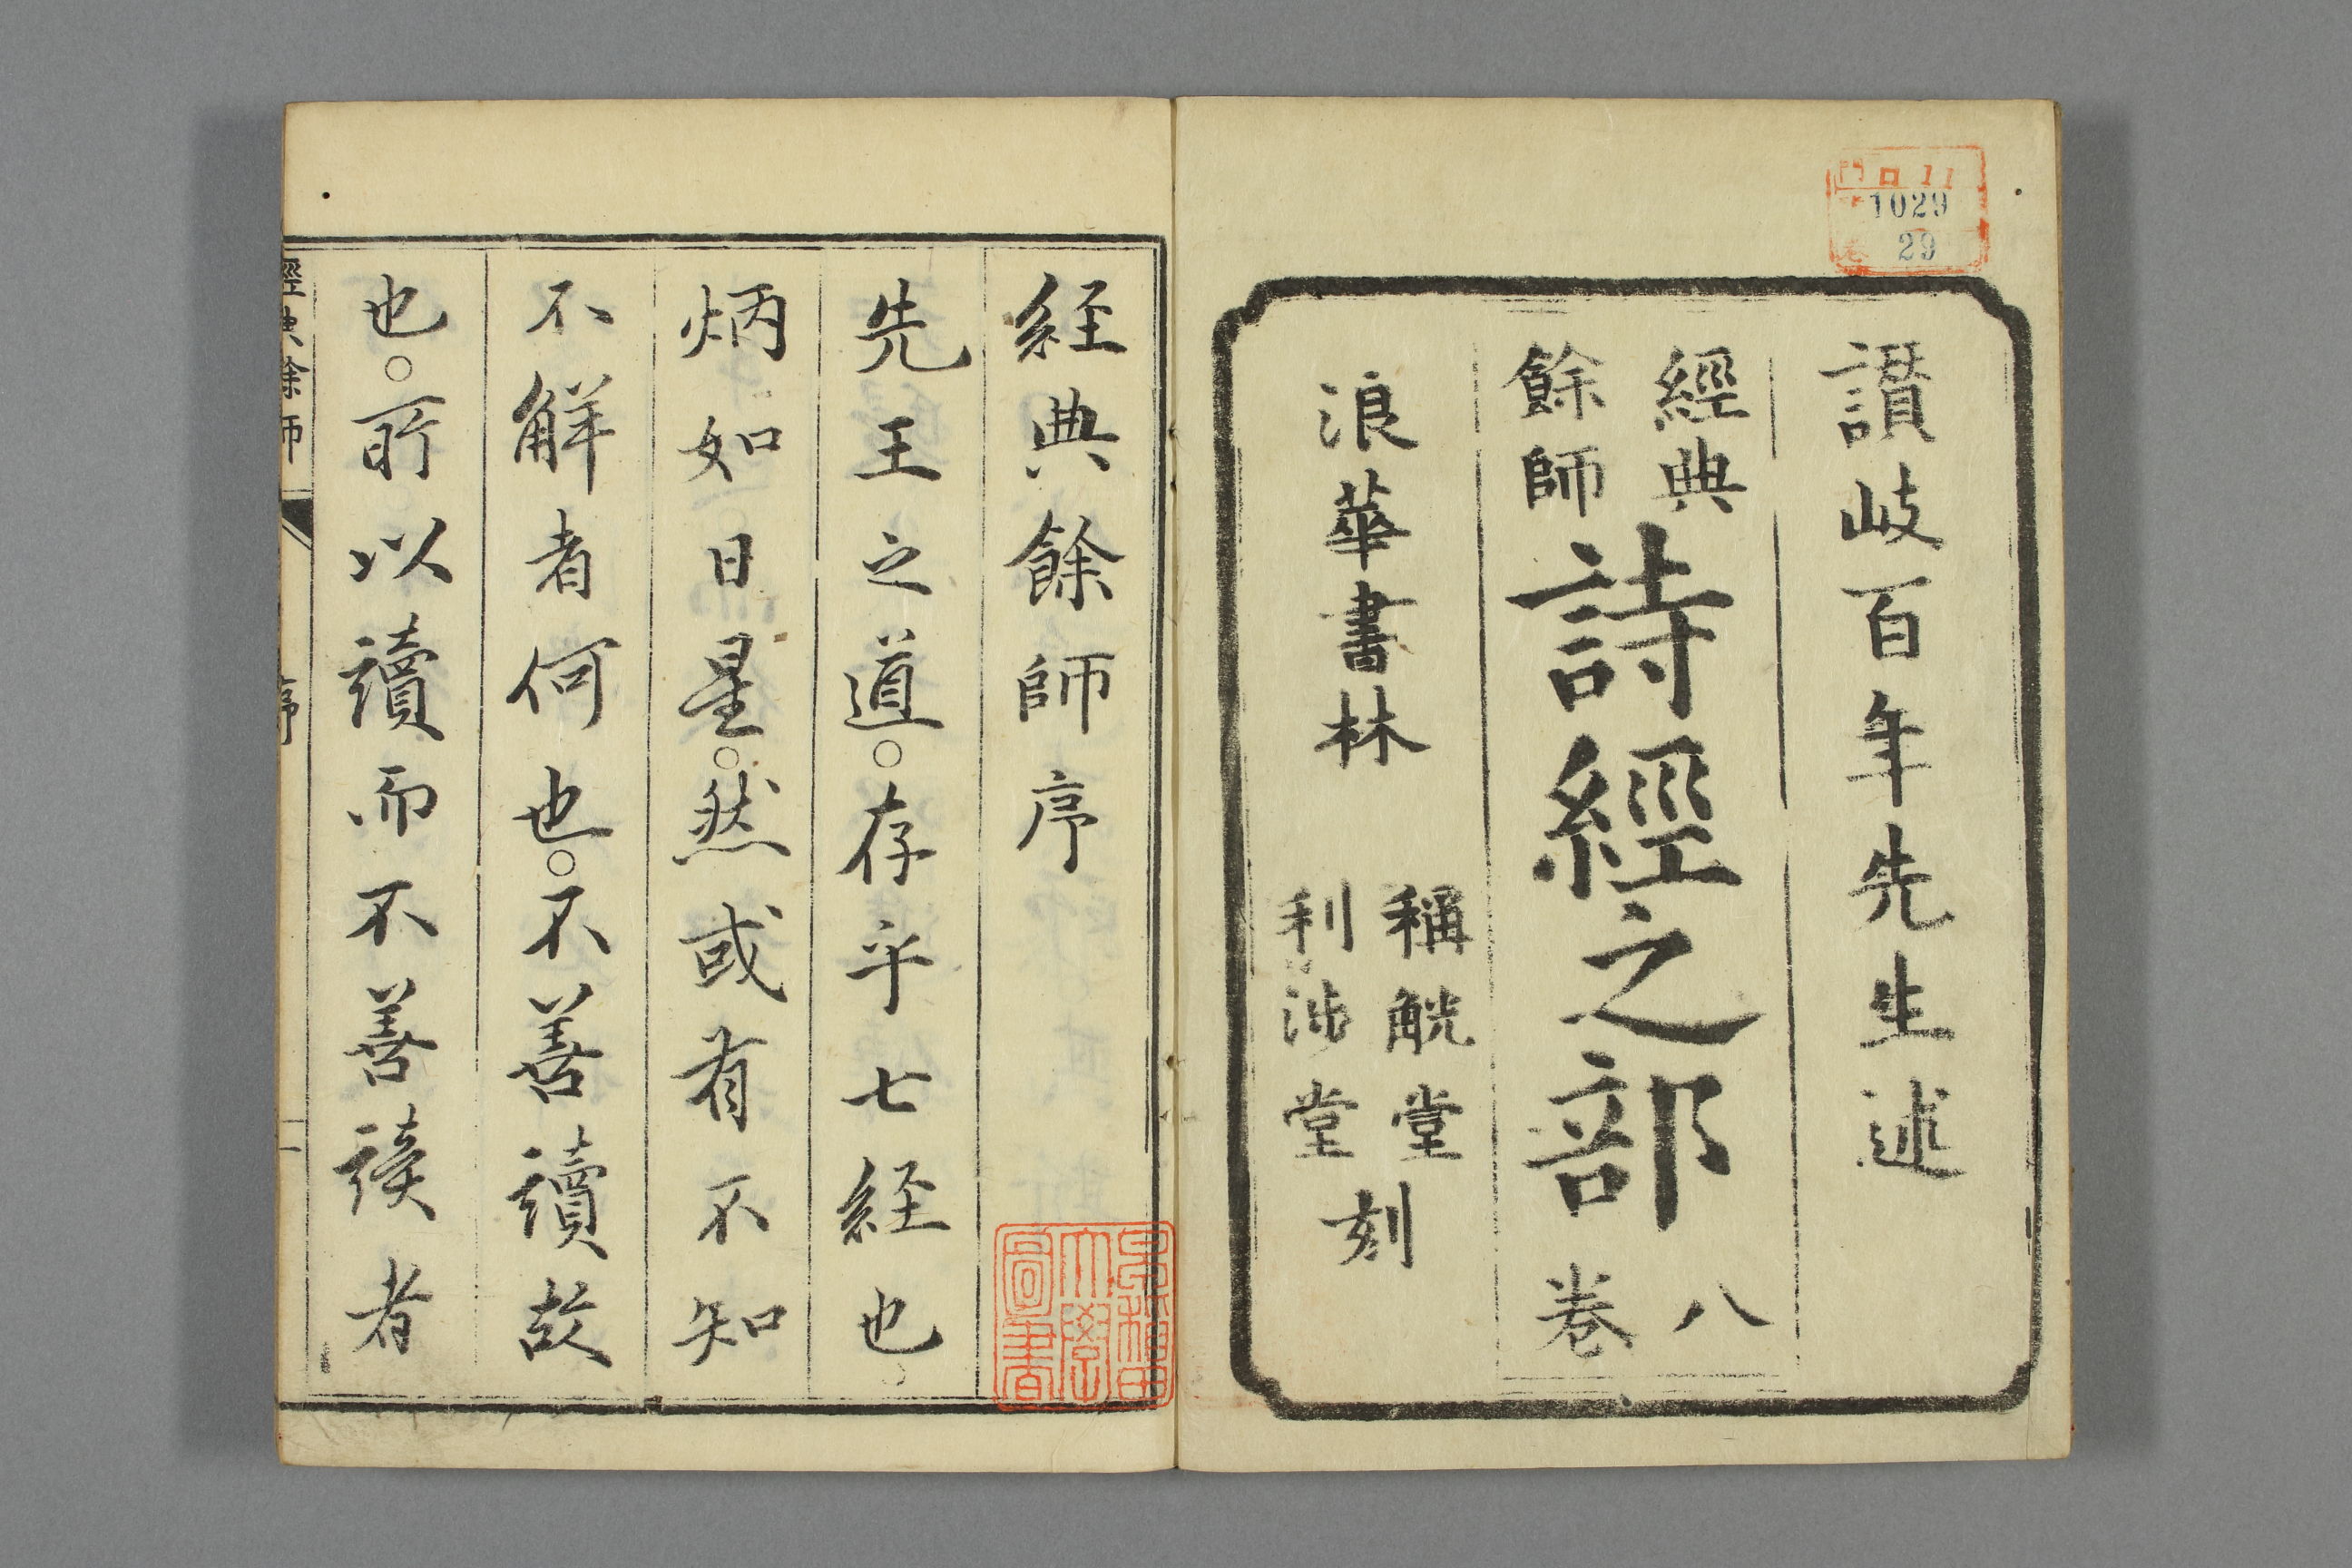 門 ロ11
1029
卷 29
讃岐百年先生述
經典
餘師
詩經之部
八
卷
浪華書林
稱觥堂
利渉堂
刻
経典餘師序
先王之道。存乎七経也。
炳如日星。然或有不知
不解者何也。不善讀故
也。所以讀而不善讀者
經典餘師
序
一
早稲田
大學
圖書